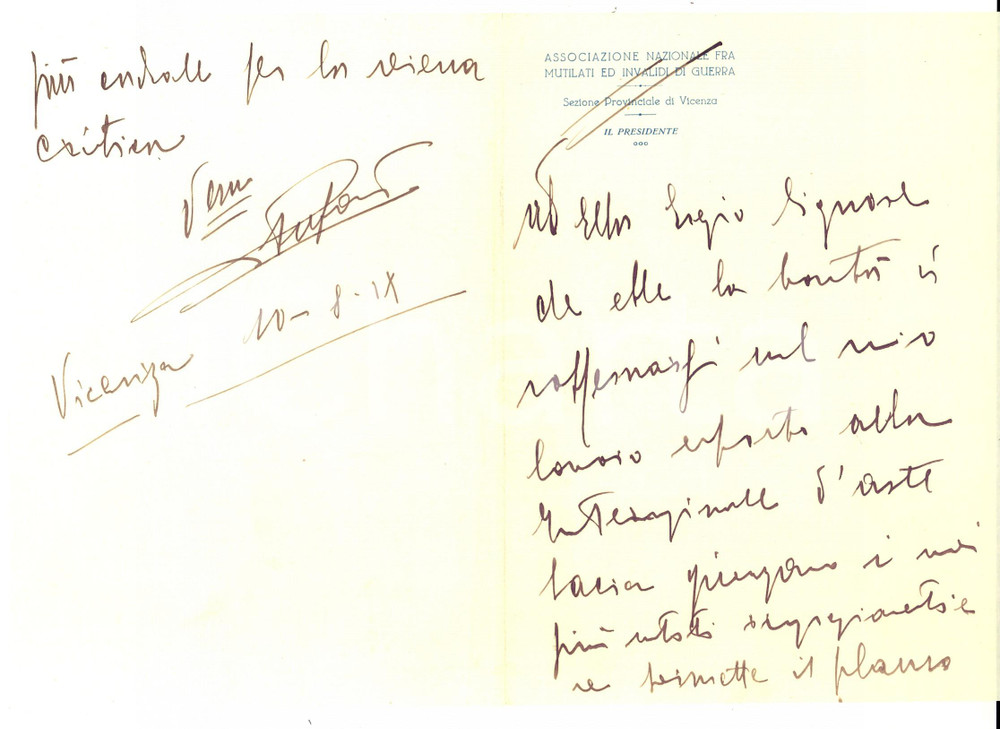 ASSOCIAZIONE NAZIONALE FRA
MUTILATI ED INVALIDI DI GUERRA
Sezione Provinciale di Vicenza
IL PRESIDENTE
Ad Ella Egregio Signore
che ebbe la bontà di
soffermarsi sul mio
lavoro esposto alla
Internazionale d'arte
sacra giungano i miei
più sentiti ringraziamenti
se permette il plauso
più cordiale per la
critica
Vicenza 10-8-IX